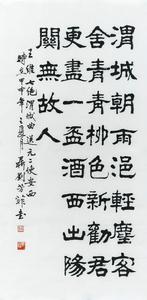 渭城朝雨浥輕塵客
舍青青柳色新勸君
更盡一盃酒西出陽
關無故人
王維七絕渭城曲送元二使安西
時在甲申年
書